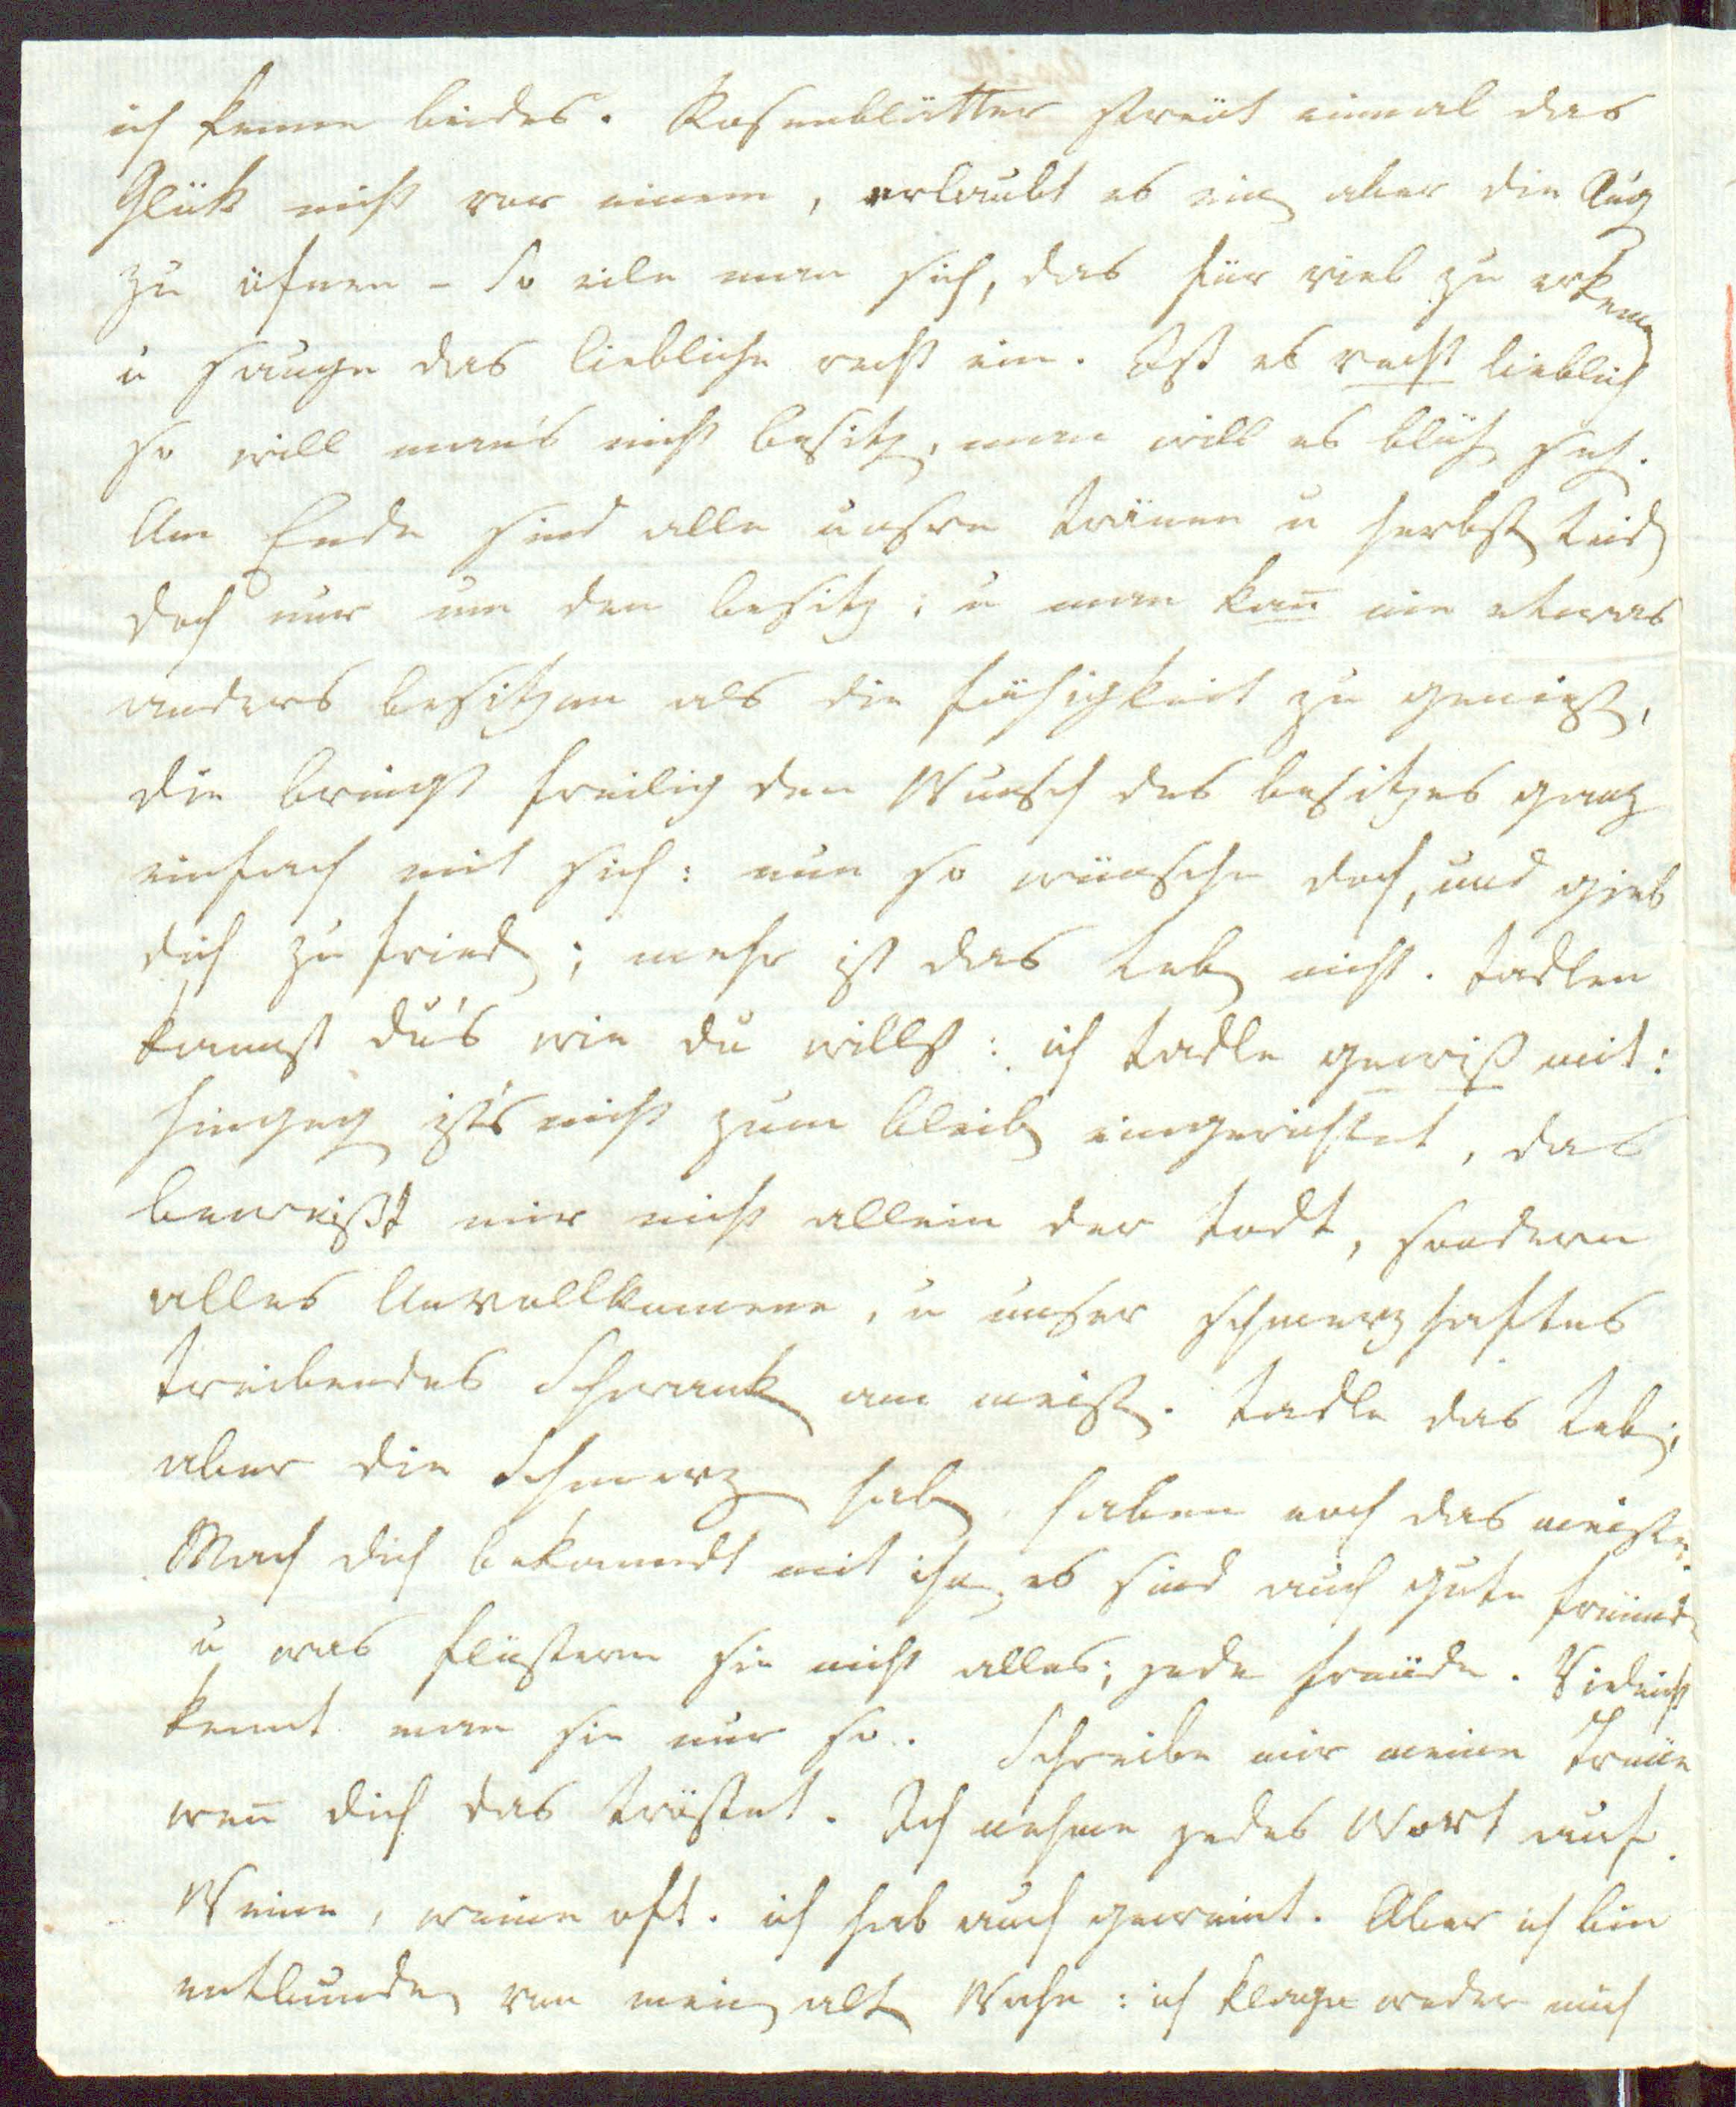 ich kenne beides. Rosenblätter streüt einmal das
Glük nicht vor einem, erlaubt es ein aber die Aug
zu öfnen – so eile man sich, das für viel zu erkenen
u sauge das liebliche recht ein. Ist es recht lieblich
so will man's nicht besitz, man will es blüh seh.
Am Ende sind alle unsre tränen u herbst Leid
doch nur um den besitz; u man kan̅ nie etwas
anders besitzen als die fähigkeit zu genieß,
die bringt freilig den Wunsch des besitzes ganz
einfach mit sich: nun so wünsche doch, und gieb
dich zu fried; mehr ist das Leb nicht. tadlen
kannst du's wie du willst: ich tadle gewiß mit:
hingeg ist's nicht zum bleib eingerichtet, das
beweißt mir nicht allein der todt, sondern
alles Unvollkomene, u unser schmerzhaftes
treibendes Schwank am meist. tadle das Leb;
aber die Schmerz hab haben noch das meiste.
Mach dich bekanndt mit ihn, es sind auch gute freünde
u was flüstern sie nicht alles; jede freüde. Vieleicht
kennt man sie nur so. Schreibe mir meine Treüe
wen̅ dich das tröstet. Ich nehme jedes Wort auf.
Weine, weine oft. ich hab auch geweint. Aber ich bin
entbunden von mein alt Wahn: ich klage weder mich